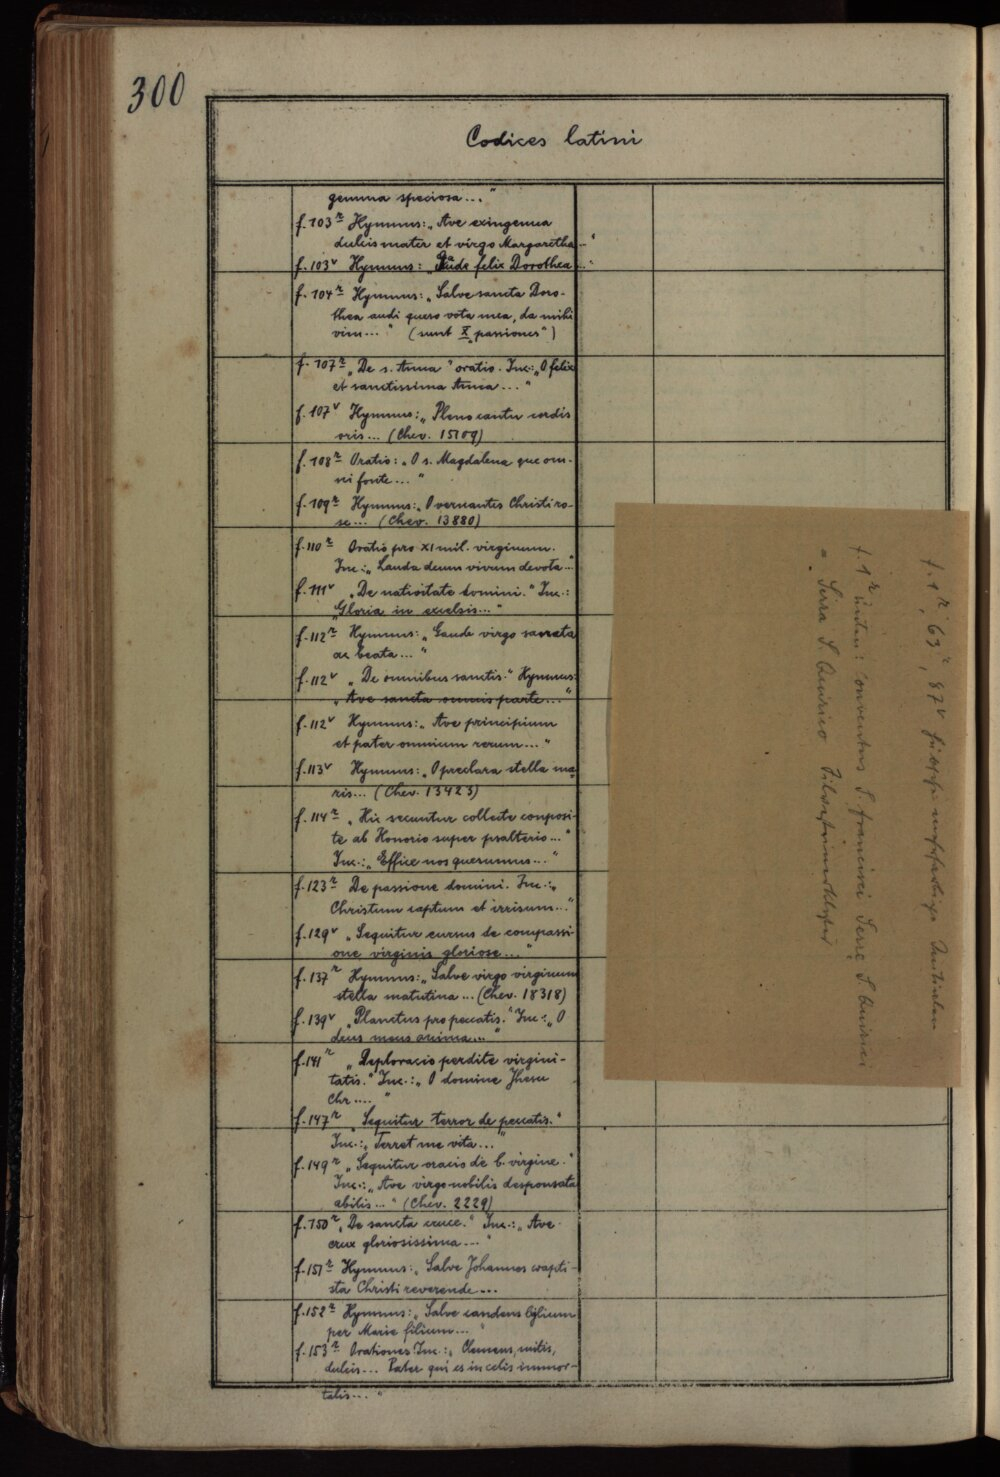 300
Codices latini
gemma speciosa..."
f. 103r Hymnus: „Ave exingenua
dulcis mater et virgo Margaretha..."
f. 103v Hymnus: „Gaude felix Dorothea..."
f. 104r Hymnus: „Salve sancta Doro-
thea audi queso vota mea, da mihi
vim..." (sunt X „passiones")
f. 107r „De s. Anna" oratio. Inc.: „O felix
et sanctissima Anna..."
f. 107v Hymnus: „Pleno cantu cordis
oris... (Chev. 15109)
f. 108r Oratio: „O s. Magdalena que om-
ni fonte..."
f. 109r Hymnus: „O vernantes Christi ro-
se... (Chev. 13880)
f. 110r Oratio pro XI mil. virginum.
Inc.: „Lauda deum vivum devota..."
f. 111v „De nativitate domini." Inc.:
„Gloria in excelsis..."
f. 112r Hymnus: „Gaude virgo sancta
ac beata..."
f. 112v „De omnibus sanctis." Hymnus:
„Ave sancta omnis parte..."
f. 112v Hymnus: „Ave principium
et pater omnium rerum..."
f. 113v Hymnus: „O preclara stella ma-
ris... (Chev. 13423)
f. 114r „Hic secuntur collecte composi-
te ab Honorio super psalterio..."
Inc.: „Effice nos quesumus..."
f. 123r De passione domini. Inc.: „
Christum captum et irrisum..."
f. 129v „Sequitur cursus de compassi-
one virginis gloriose..."
f. 137r Hymnus: „Salve virgo virginum
stella matutina... (Chev. 18318)
f. 139v „Planctus pro peccatis." Inc.: „O
deus meus anima..."
f. 141r „Deploracio perdite virgini-
tatis." Inc.: „O domine Jhesu
Chr...."
f. 147r „Sequitur terror de peccatis."
Inc.: „Terret me vita..."
f. 149r „Sequitur oracio de b. virgine."
Inc.: „Ave virgo nobilis desponsata
abilis..." (Chev. 2229)
f. 150r „De sancta cruce." Inc.: „Ave
crux gloriosissima..."
f. 151r Hymnus: „Salve Johannes wapti-
sta Christi reverende...
f. 152r Hymnus: „Salve candens lylium
per Marie filium..."
f. 153r Orationes Inc.: „Clemens, mitis,
dulcis... Pater qui es in celis immor-
talis..."
f. 1r, 63r, 87v
f. 1r unten: Conventus S. francisci Serre S. Quirici
= Serra S. Quirico